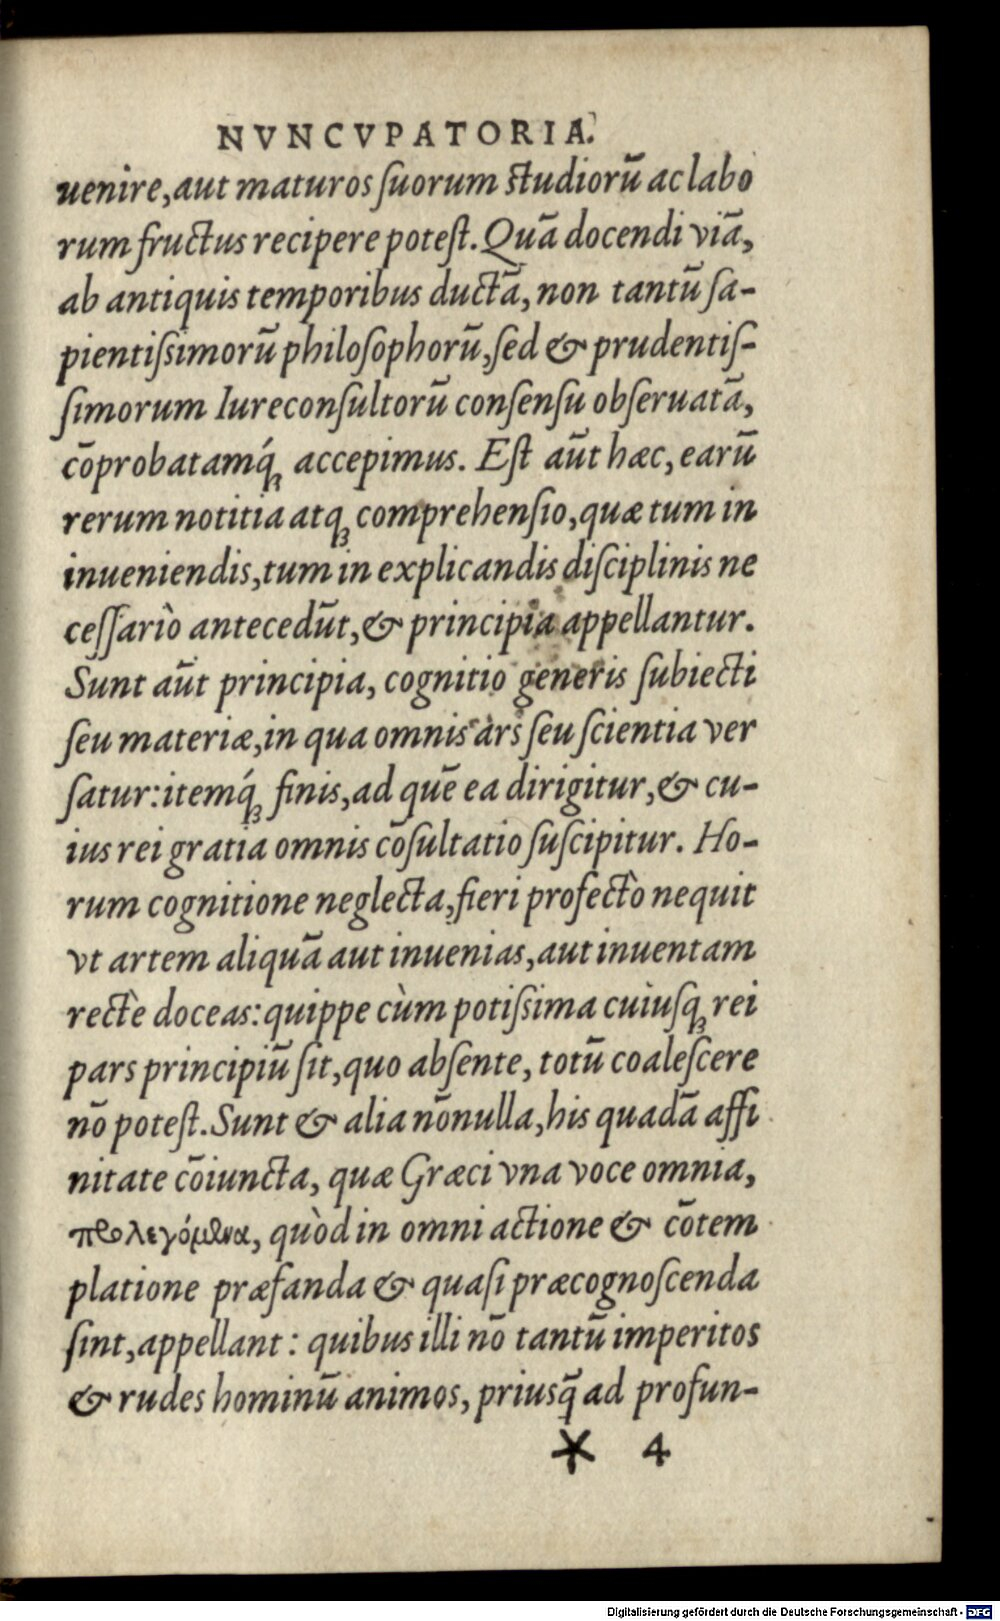 NVNCVPATORIA.
uenire, aut maturos ſuorum ſtudiorū ac labo
rum fructus recipere poteſt. Quā docendi viā,
ab antiquis temporibus ductā, non tantū ſa-
pientiſsimorū philoſophorū, ſed & prudentiſ-
ſimorum Iureconſultorū conſenſu obſeruatā,
cōprobatamq́ꝫ accepimus. Eſt aūt hæc, earū
rerum notitia atqꝫ comprehenſio, quæ tum in
inueniendis, tum in explicandis diſciplinis ne
ceſſariò antecedūt, & principia appellantur.
Sunt aūt principia, cognitio generis ſubiecti
ſeu materiæ, in qua omnis ars ſeu ſcientia ver
ſatur: itemq́ꝫ finis, ad quē ea dirigitur, & cu-
ius rei gratia omnis cōſultatio ſuſcipitur. Ho-
rum cognitione neglecta, fieri profectò nequit
vt artem aliquā aut inuenias, aut inuentam
rectè doceas: quippe cùm potiſsima cuiuſqꝫ rei
pars principiū ſit, quo abſente, totū coaleſcere
nō poteſt. Sunt & alia nōnulla, his quadā affi
nitate cōiuncta, quæ Græci vna voce omnia,
προλεγόμενα, quòd in omni actione & cōtem
platione præfanda & quaſi præcognoſcenda
ſint, appellant: quibus illi nō tantū imperitos
& rudes hominū animos, priusq̄ ad profun-
* 4
Digitalisierung gefördert durch die Deutsche Forschungsgemeinschaft - DFG